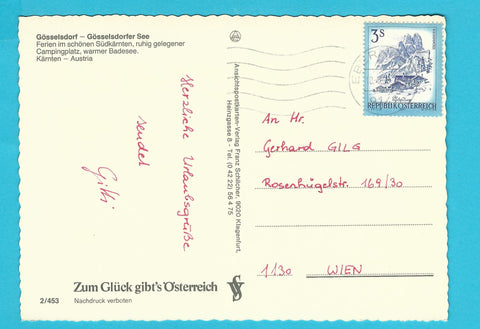 Gösselsdorf – Gösselsdorfer See
Ferien im schönen Südkärnten, ruhig gelegener
Campingplatz, warmer Badesee.
Kärnten – Austria
Herzliche Urlaubsgrüße
sendet
Gitti
Ansichtspostkarten-Verlag Franz Schilcher, 9020 Klagenfurt,
Heinzgasse 8 - Tel. (0 42 22) 56 4 75
3 S
REPUBLIK ÖSTERREICH
An Hr.
Gerhard GILG
Rosenhügelstr. 169/30
1130 WIEN
Zum Glück gibt's Österreich
2/453
Nachdruck verboten